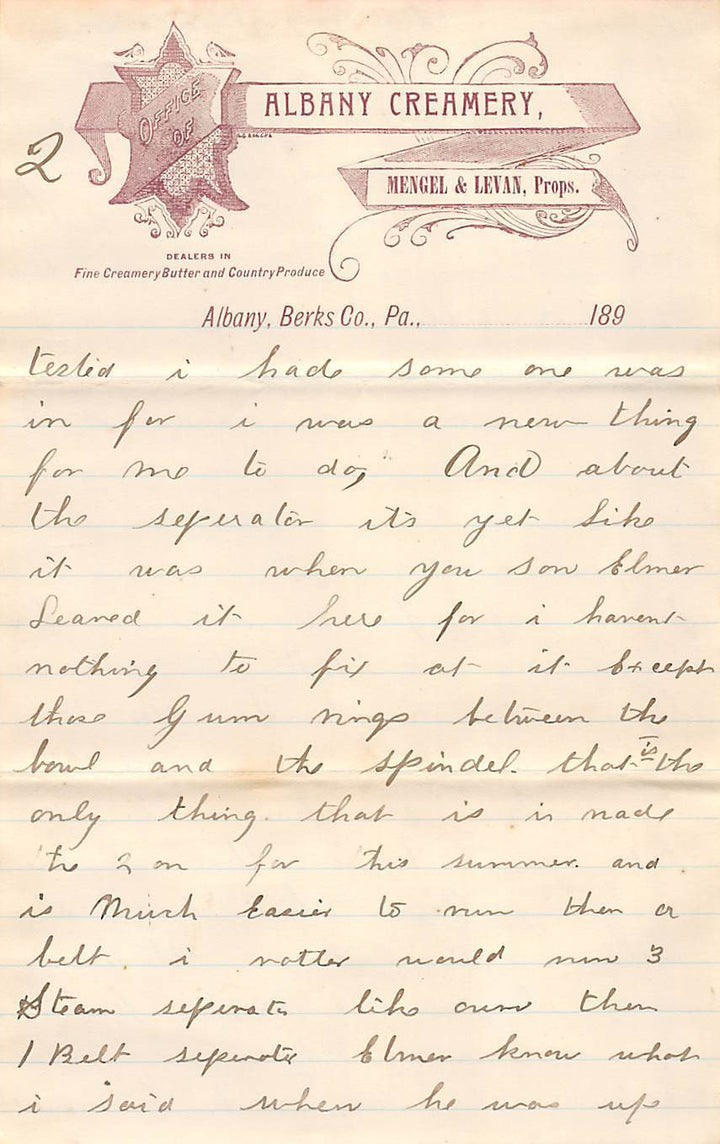 2
OFFICE
OF
ALBANY CREAMERY,
MENGEL & LEVAN, Props.
DEALERS IN
Fine Creamery Butter and Country Produce
Albany, Berks Co., Pa., 189
tested i hade some one was
in for i was a new thing
for me to do, And about
the seperator its yet like
it was when you son Elmer
Leaved it here for i havent
nothing to fix at it Except
those Gum rings between the
bowl and the spindel. that is the
only thing. that is is made
the 2 on for this summer. and
is Much Easier to run then a
belt. i rotter would run 3
Steam seperator like ours then
1 Belt seperator Elmer know what
i said when he was up